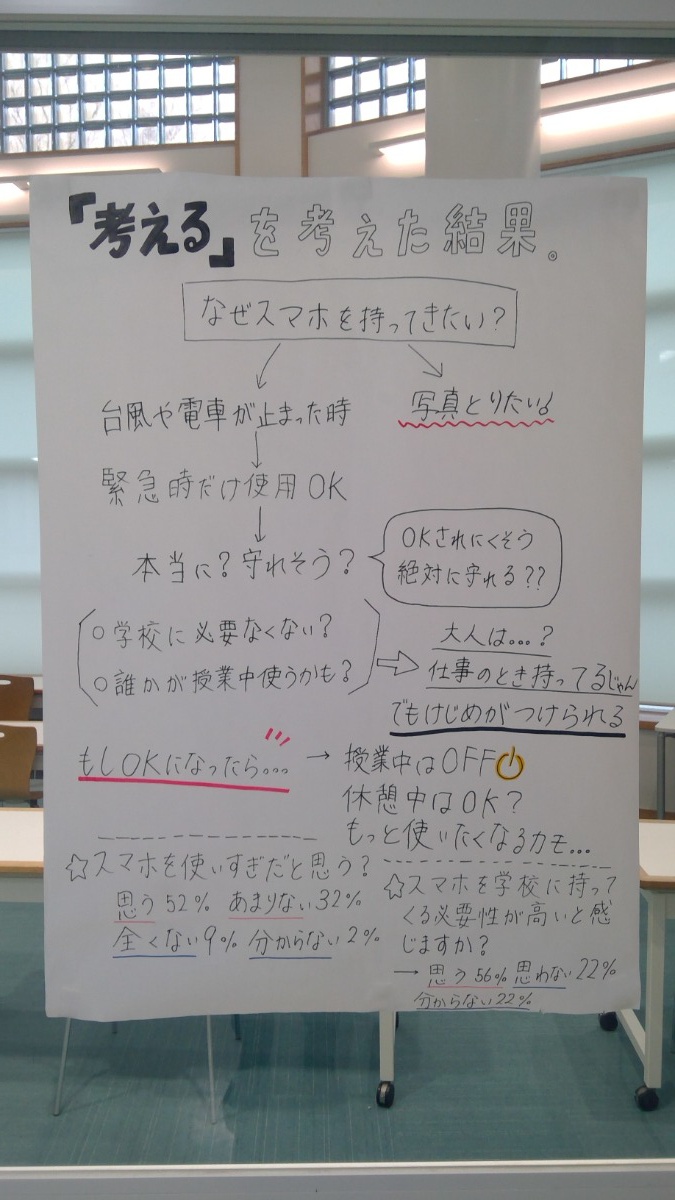 『考える』を考えた結果。
なぜスマホを持ってきたい？
台風や電車が止まった時
写真とりたい！
緊急時だけ使用OK
本当に？守れそう？
OKされにくそう
絶対に守れる？？
○学校に必要なくない？
○誰かが授業中使うかも？
大人は…？
仕事のとき持ってるじゃん
でもけじめがつけられる
もしOKになったら…
→ 授業中はOFF
休憩中はOK？
もっと使いたくなるカモ…
☆スマホを使いすぎだと思う？
思う52% あまりない32%
全くない9% 分からない2%
☆スマホを学校に持って
くる必要性が高いと感
じますか？
→ 思う56% 思わない22%
分からない22%